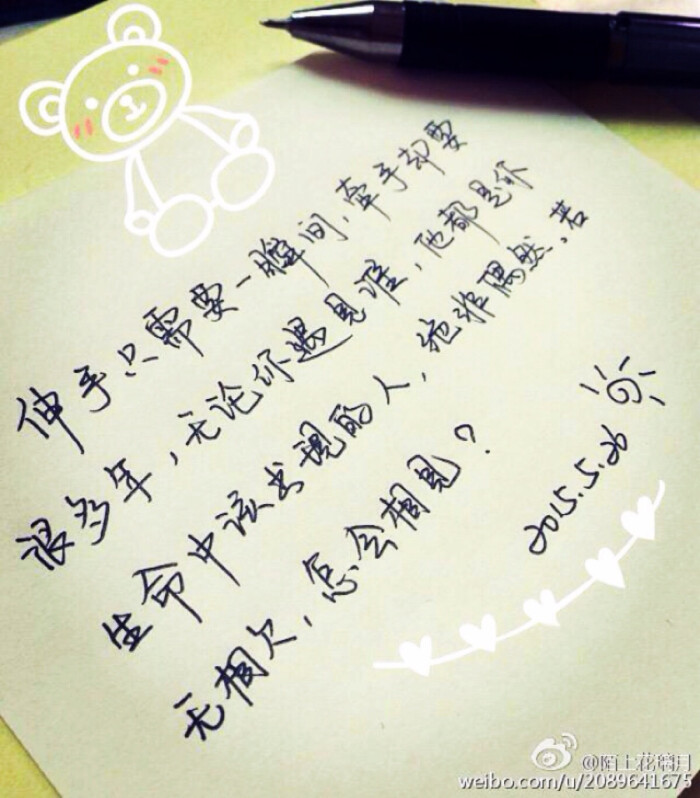 伸手只需要一瞬间，牵手却要
很多年，无论你遇见谁，他都是你
生命中该出现的人，绝非偶然，若
无相欠，怎会相见？
2015.5.26
@陌上花犒月
weibo.com/u/2089641675